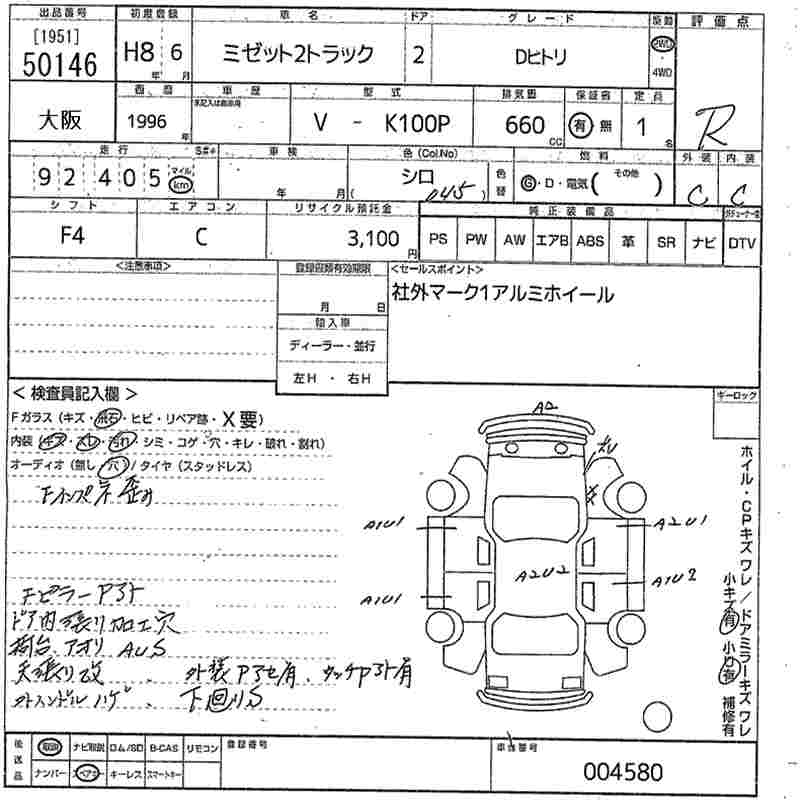 出品番号 初度登録 車名 ドア グレード 駆動 評価点
[1951]
50146 H8 6 ミゼット2トラック 2 Dヒトリ 2WD
年 月 ・4WD
西暦 車歴 型式 排気量 保証書 定員
未記入は自家用
大阪 1996 V - K100P 660 有 無 1 R
年 CC 名
走行 S#* 車検 色(Col.No) 燃料 外装 内装
92405 マイル km 年 月( シロ 045) 色替 G・D・電気( その他 ) C C
シフト エアコン リサイクル預託金 純正装備品
F4 C 3,100円 PS PW AW エアB ABS 革 SR ナビ DTV
<注意事項> 登録書類有効期限 <セールスポイント>
月 日 社外マーク1アルミホイール
輸入車
ディーラー・並行
左H ・ 右H
<検査員記入欄> キーロック
Fガラス(キズ・飛石・ヒビ・リペア跡・X要)
内装(キズ・スレ・汚れ・シミ・コゲ・穴・キレ・破れ・割れ)
オーディオ(無し/穴)/タイヤ(スタッドレス)
A2
A1U1 A2U1
A2U2
A1U1 A1U2
ドア内張り加工穴
荷台 アオリ AUS
天張り改 、 外装Pヌケ有、タッチPアト有
ハンドルハゲ 、 下回りS
ホイル・CPキズ ワレ/ドアミラーキズ ワレ
小キズ有 小凹有 補修有
後送品 取説 ナビ取説 ロム/SD B-CAS リモコン 登録番号 車台番号
ナンバー スペアキー キーレス スマートキー 004580